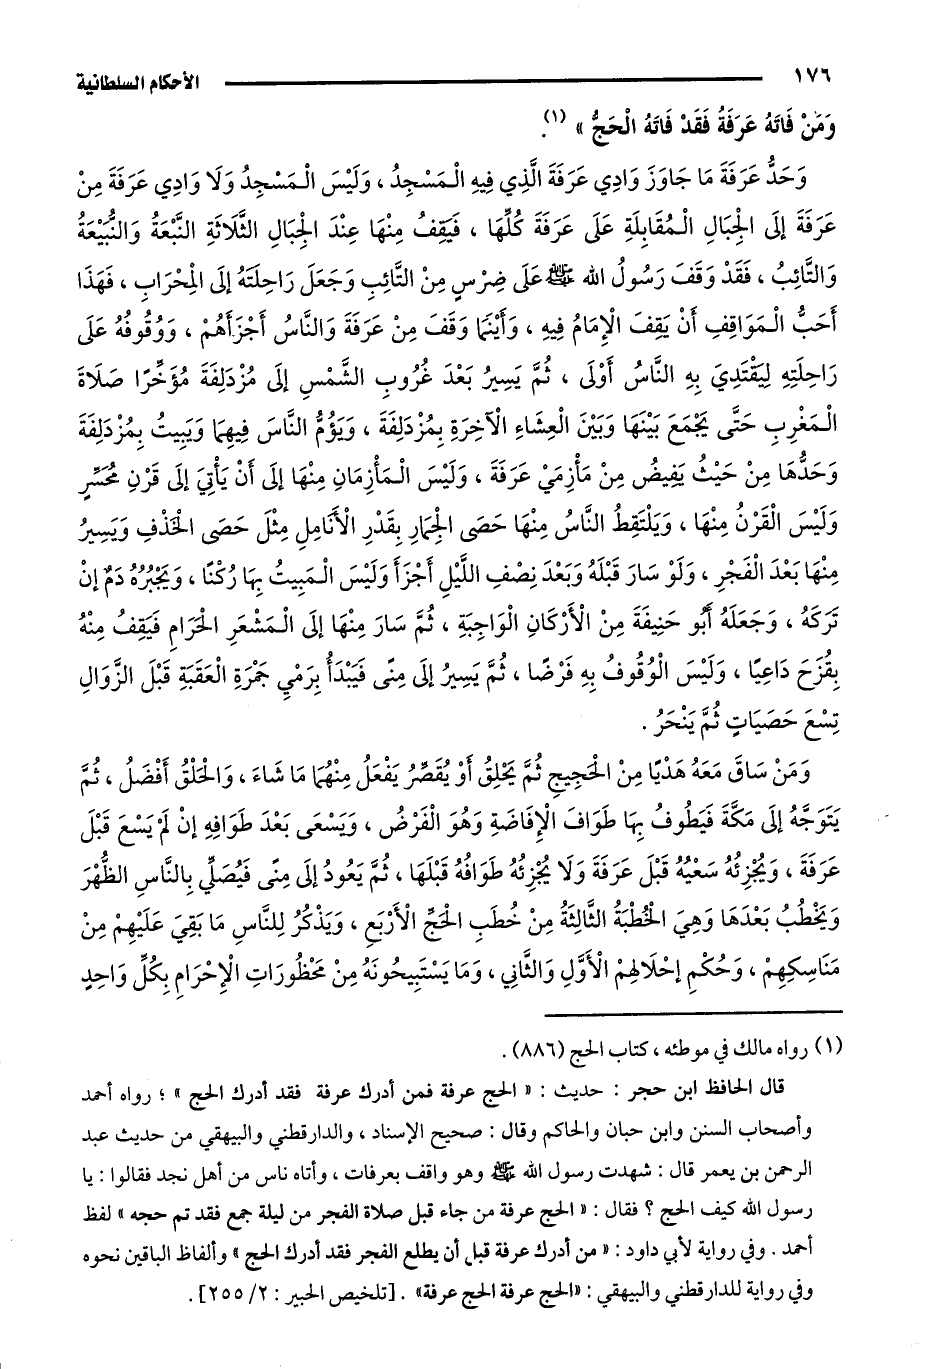 ١٧٦ الأحكام السلطانية
وَمَنْ فَاتَهُ عَرَفَةُ فَقَدْ فَاتَهُ الْحَجُّ » (١).
وَحَدُّ عَرَفَةَ مَا جَاوَزَ وَادِي عَرَفَةَ الَّذِي فِيهِ الْمَسْجِدُ ، وَلَيْسَ الْمَسْجِدُ وَلَا وَادِي عَرَفَةَ مِنْ
عَرَفَةَ إلَى الْجِبَالِ الْمُقَابِلَةِ عَلَى عَرَفَةَ كُلِّهَا ، فَيَقِفُ مِنْهَا عِنْدَ الْجِبَالِ الثَّلَاثَةِ النَّبْعَةُ وَالنُّبَيْعَةُ
وَالتَّائِبُ ، فَقَدْ وَقَفَ رَسُولُ الله ﷺ عَلَى ضِرْسٍ مِنْ التَّائِبِ وَجَعَلَ رَاحِلَتَهُ إلَى الْمِحْرَابِ ، فَهَذَا
أَحَبُّ الْمَوَاقِفِ أَنْ يَقِفَ الْإِمَامُ فِيهِ ، وَأَيْنَمَا وَقَفَ مِنْ عَرَفَةَ وَالنَّاسُ أَجْزَأَهُمْ ، وَوُقُوفُهُ عَلَى
رَاحِلَتِهِ لِيَقْتَدِيَ بِهِ النَّاسُ أَوْلَى ، ثُمَّ يَسِيرُ بَعْدَ غُرُوبِ الشَّمْسِ إلَى مُزْدَلِفَةَ مُؤَخِّرًا صَلَاةَ
الْمَغْرِبِ حَتَّى يَجْمَعَ بَيْنَهَا وَبَيْنَ الْعِشَاءِ الْآخِرَةِ بِمُزْدَلِفَةَ ، وَيَؤُمُّ النَّاسَ فِيهِمَا وَيَبِيتُ بِمُزْدَلِفَةَ
وَحَدُّهَا مِنْ حَيْثُ يَفِيضُ مِنْ مَأْزِمَيْ عَرَفَةَ ، وَلَيْسَ الْمَأْزِمَانِ مِنْهَا إلَى أَنْ يَأْتِيَ إلَى قَرْنِ مُحَسِّرٍ
وَلَيْسَ الْقَرْنُ مِنْهَا ، وَيَلْتَقِطُ النَّاسُ مِنْهَا حَصَى الْجِمَارِ بِقَدْرِ الْأَنَامِلِ مِثْلَ حَصَى الْخَذْفِ وَيَسِيرُ
مِنْهَا بَعْدَ الْفَجْرِ ، وَلَوْ سَارَ قَبْلَهُ وَبَعْدَ نِصْفِ اللَّيْلِ أَجْزَأَ وَلَيْسَ الْمَبِيتُ بِهَا رُكْنًا ، وَيَجْبُرُهُ دَمٌ إنْ
تَرَكَهُ ، وَجَعَلَهُ أَبُو حَنِيفَةَ مِنْ الْأَرْكَانِ الْوَاجِبَةِ ، ثُمَّ سَارَ مِنْهَا إلَى الْمَشْعَرِ الْحَرَامِ فَيَقِفُ مِنْهُ
بِقُزَحَ دَاعِيًا ، وَلَيْسَ الْوُقُوفُ بِهِ فَرْضًا ، ثُمَّ يَسِيرُ إلَى مِنًى فَيَبْدَأُ بِرَمْيِ جَمْرَةِ الْعَقَبَةِ قَبْلَ الزَّوَالِ
تِسْعَ حَصَيَاتٍ ثُمَّ يَنْحَرُ .
وَمَنْ سَاقَ مَعَهُ هَدْيًا مِنْ الْحَجِيجِ ثُمَّ يَحْلِقُ أَوْ يُقَصِّرُ يَفْعَلُ مِنْهُمَا مَا شَاءَ ، وَالْحَلْقُ أَفْضَلُ ، ثُمَّ
يَتَوَجَّهُ إلَى مَكَّةَ فَيَطُوفُ بِهَا طَوَافَ الْإِفَاضَةِ وَهُوَ الْفَرْضُ ، وَيَسْعَى بَعْدَ طَوَافِهِ إنْ لَمْ يَسْعَ قَبْلَ
عَرَفَةَ ، وَيُجْزِئُهُ سَعْيُهُ قَبْلَ عَرَفَةَ وَلَا يُجْزِئُهُ طَوَافُهُ قَبْلَهَا ، ثُمَّ يَعُودُ إلَى مِنًى فَيُصَلِّي بِالنَّاسِ الظُّهْرَ
وَيَخْطُبُ بَعْدَهَا وَهِيَ الْخُطْبَةُ الثَّالِثَةُ مِنْ خُطَبِ الْحَجِّ الْأَرْبَعِ ، وَيَذْكُرُ لِلنَّاسِ مَا بَقِيَ عَلَيْهِمْ مِنْ
مَنَاسِكِهِمْ ، وَحُكْمِ إحْلَالِهِمْ الْأَوَّلِ وَالثَّانِي ، وَمَا يَسْتَبِيحُونَهُ مِنْ مَحْظُورَاتِ الْإِحْرَامِ بِكُلِّ وَاحِدٍ
(١) رواه مالك في موطئه ، كتاب الحج (٨٨٦) .
قال الحافظ ابن حجر : حديث : « الحج عرفة فمن أدرك عرفة فقد أدرك الحج » ؛ رواه أحمد
وأصحاب السنن وابن حبان والحاكم وقال : صحيح الإسناد ، والدارقطني والبيهقي من حديث عبد
الرحمن بن يعمر قال : شهدت رسول الله ﷺ وهو واقف بعرفات ، وأتاه ناس من أهل نجد فقالوا : يا
رسول الله كيف الحج ؟ فقال : « الحج عرفة من جاء قبل صلاة الفجر من ليلة جمع فقد تم حجه » لفظ
أحمد . وفي رواية لأبي داود : « من أدرك عرفة قبل أن يطلع الفجر فقد أدرك الحج » وألفاظ الباقين نحوه
وفي رواية للدارقطني والبيهقي : «الحج عرفة الحج عرفة» . [تلخيص الحبير : ٢/ ٢٥٥] .